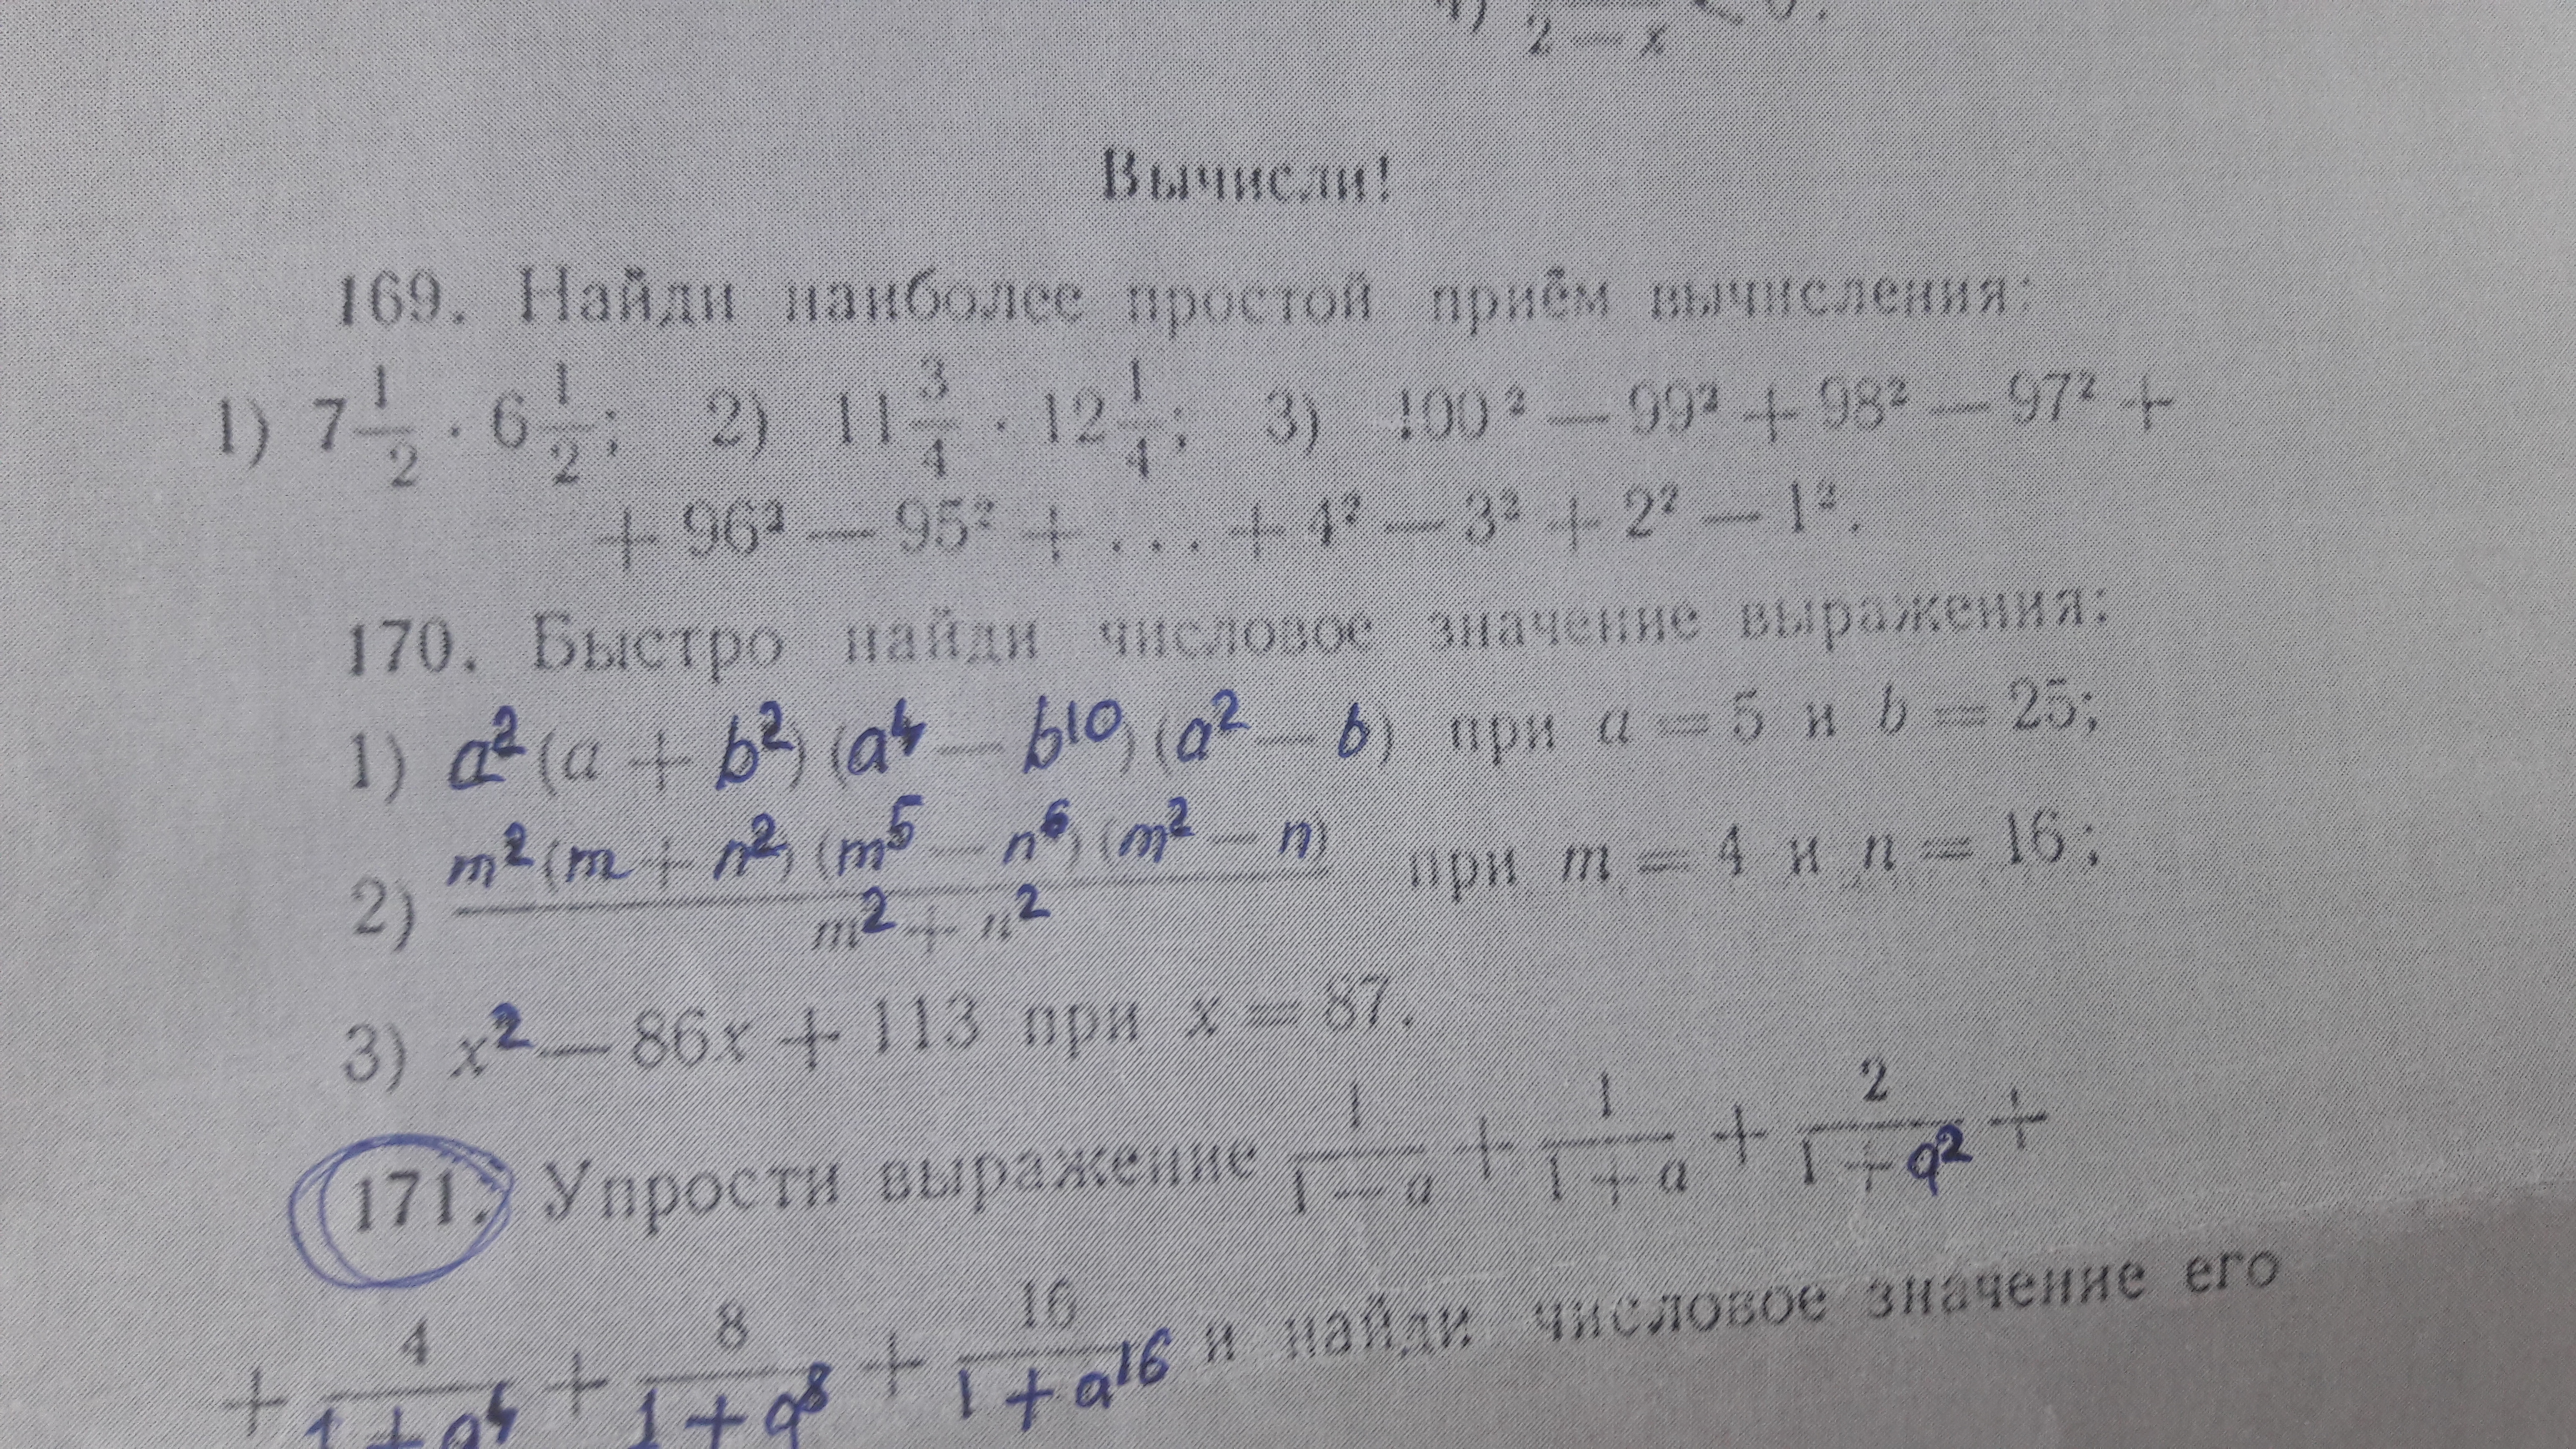 2 — x
Вычисли!
169. Найди наиболее простой приём вычисления:
1) 7 1/2 · 6 1/2; 2) 11 3/4 · 12 1/4; 3) 100² — 99² + 98² — 97² +
+ 96² — 95² + ... + 4² — 3² + 2² — 1².
170. Быстро найди числовое значение выражения:
1) a² (a + b²) (a⁴ — b¹⁰) (a² — b) при a = 5 и b = 25;
2) m² (m + n²) (m⁵ — n⁶) (m² — n) / m² + n² при m = 4 и n = 16;
3) x² — 86x + 113 при x = 87.
171. Упрости выражение 1/(1 — a) + 1/(1 + a) + 2/(1 + a²) +
+ 4/(1 + a⁴) + 8/(1 + a⁸) + 16/(1 + a¹⁶) и найди числовое значение его